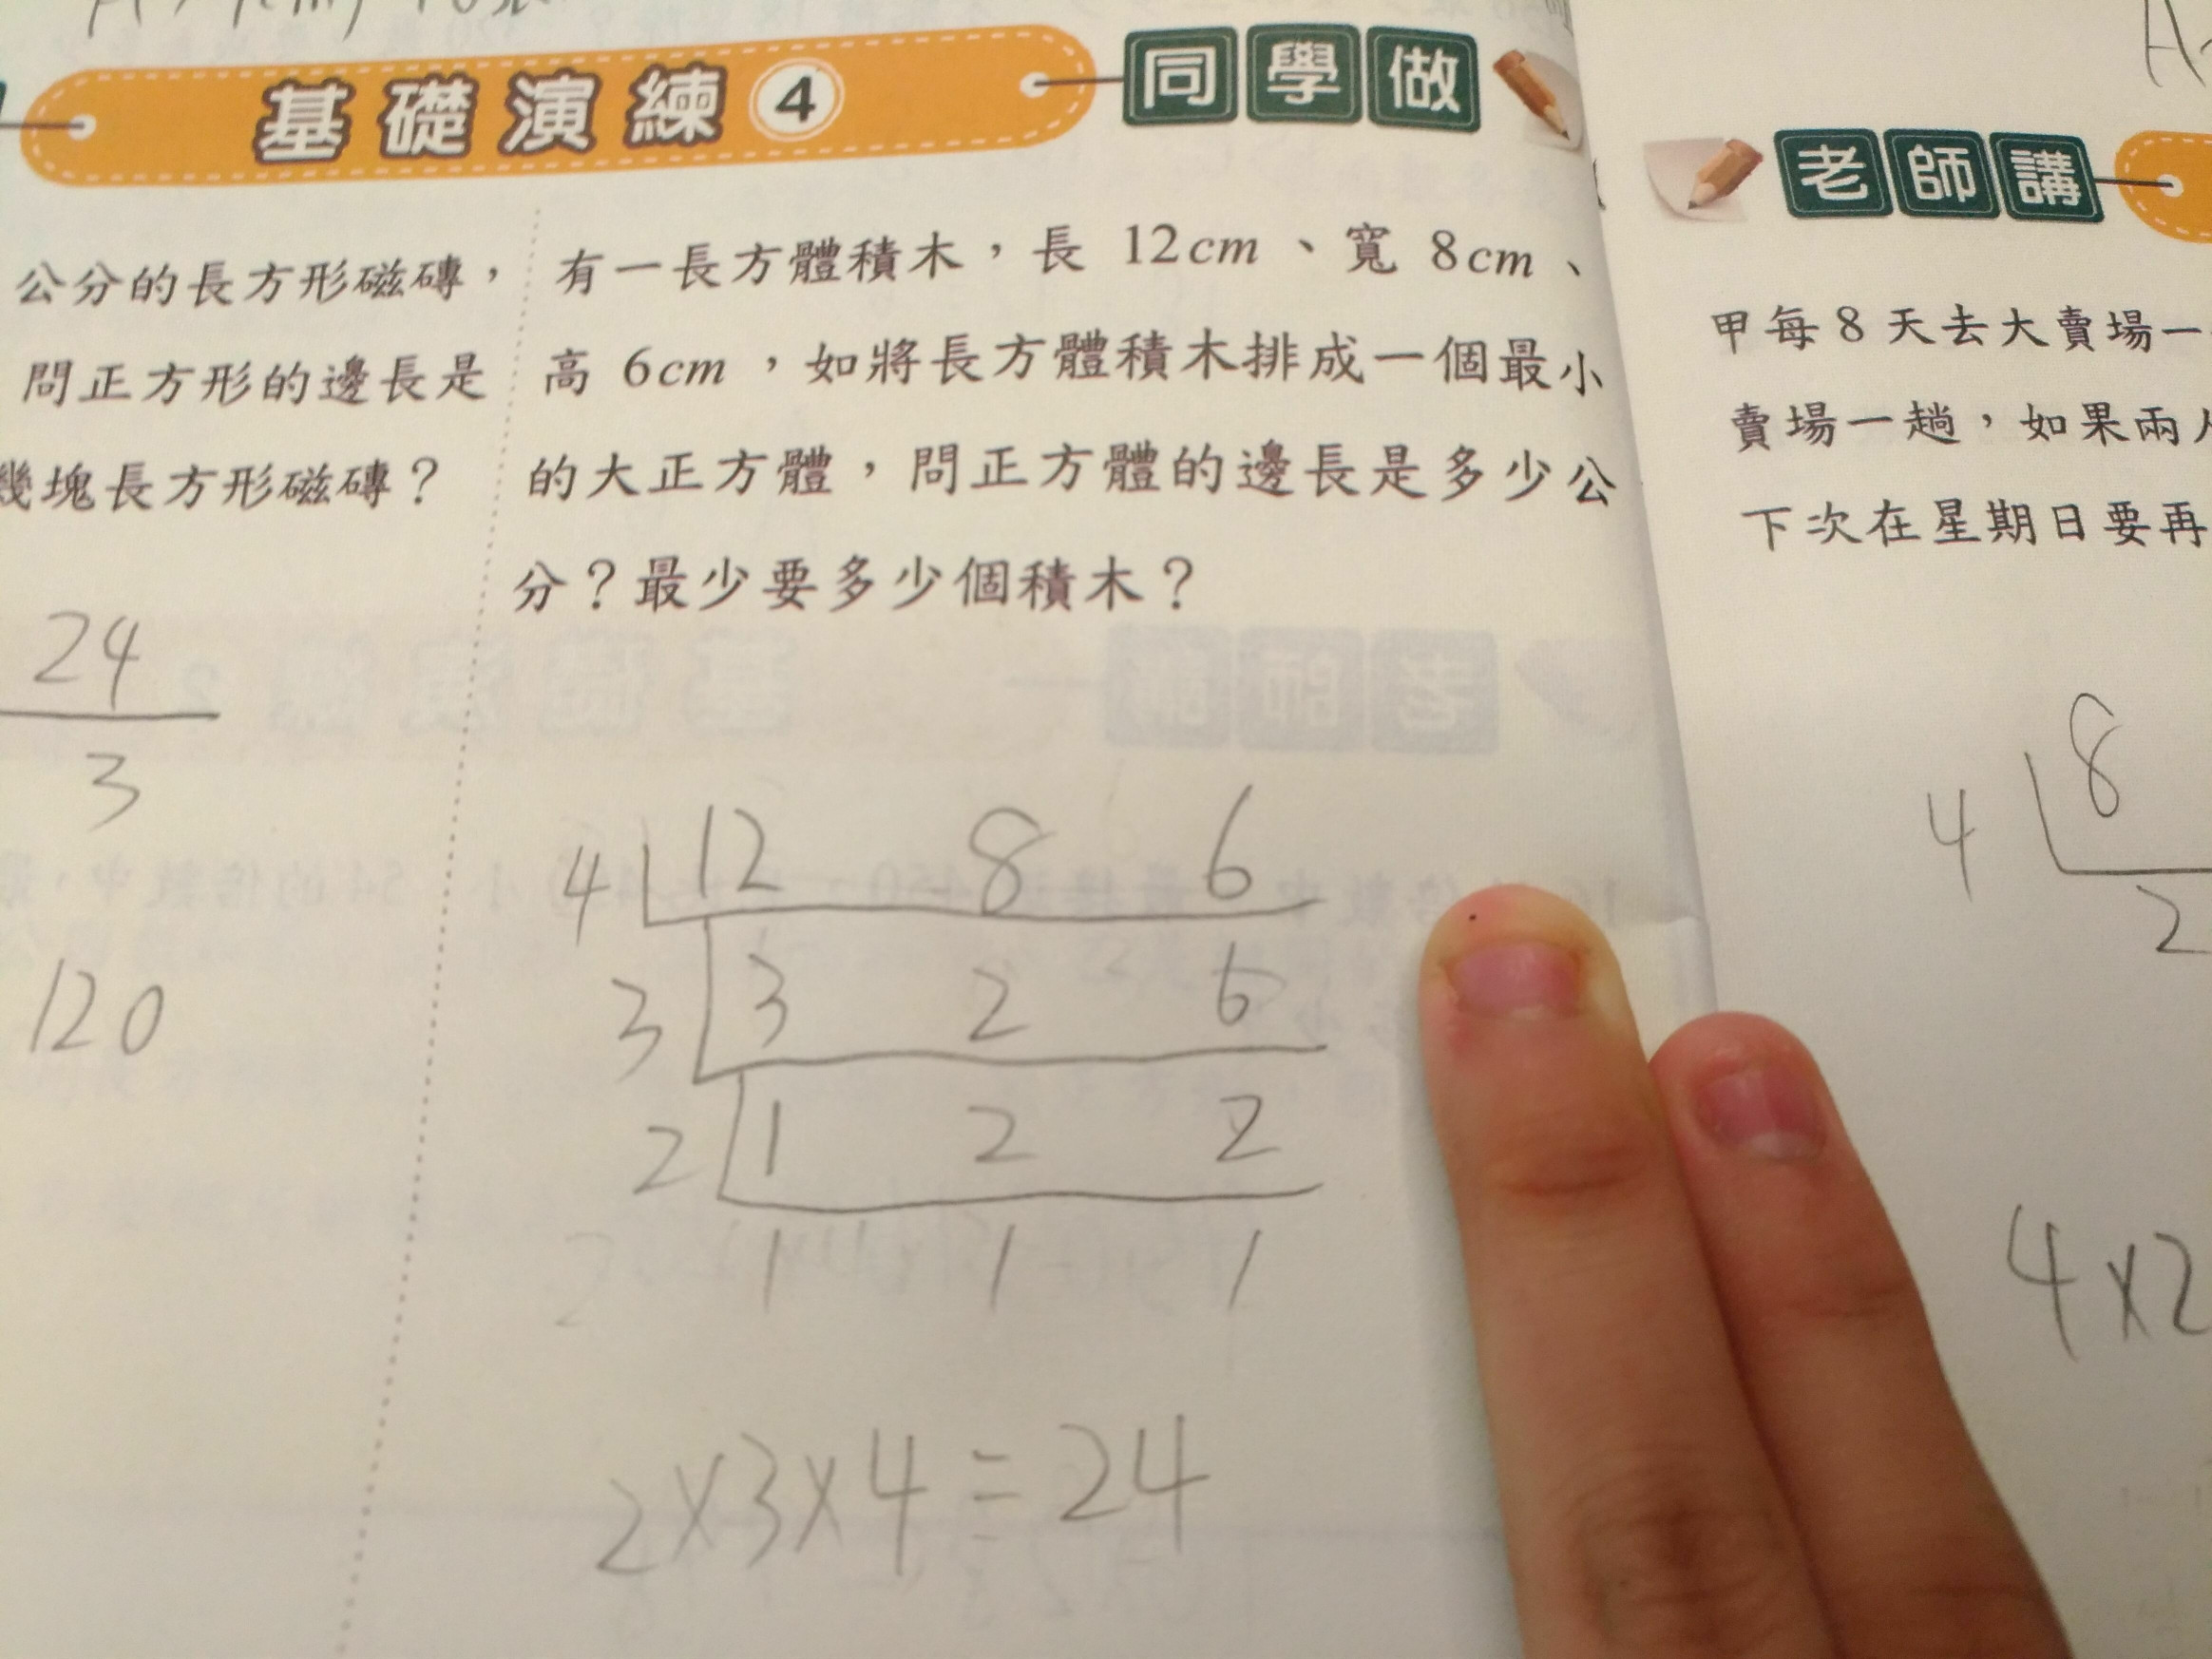 基礎演練 4 同學做
公分的長方形磁磚，
問正方形的邊長是
幾塊長方形磁磚？
24
3
120
有一長方體積木，長 12cm、寬 8cm、
高 6cm，如將長方體積木排成一個最小
的大正方體，問正方體的邊長是多少公
分？最少要多少個積木？
4 12 8 6
3 3 2 6
2 1 2 2
1 1 1
2×3×4=24
老師講
甲每 8 天去大賣場一
賣場一趟，如果兩
下次在星期日要再
4 8
2
4×2